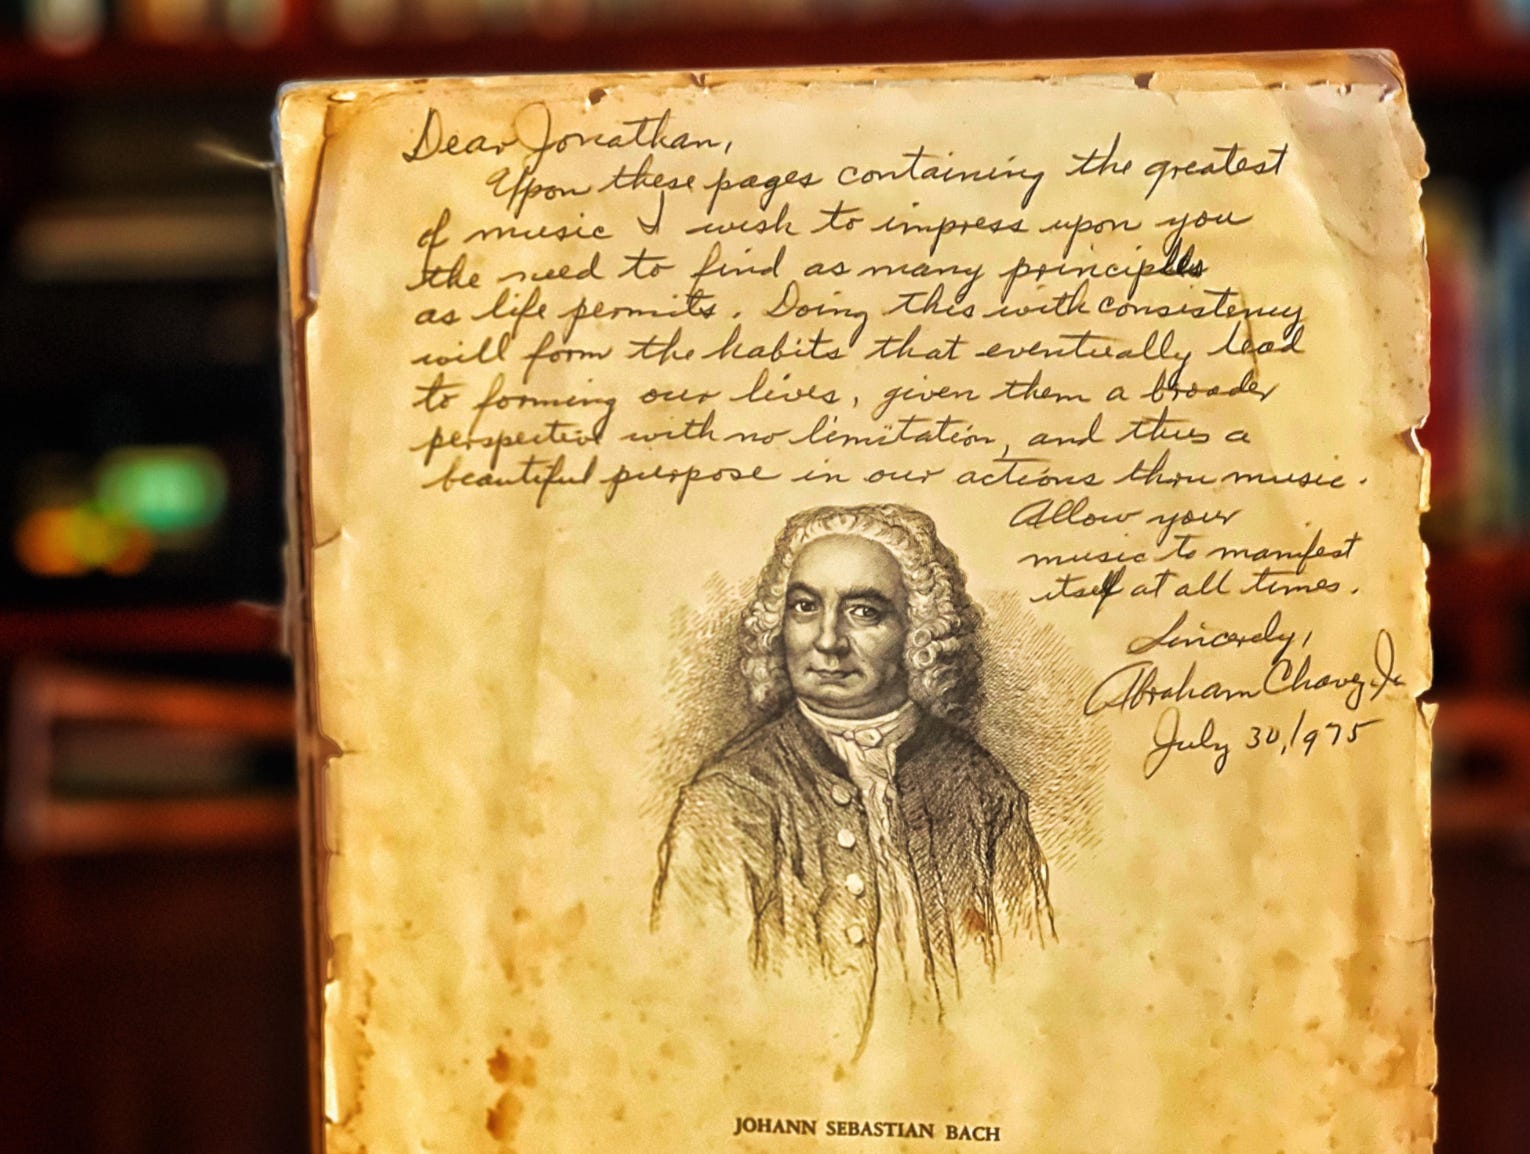 Dear Jonathan,
Upon these pages containing the greatest
of music I wish to impress upon you
the need to find as many principles
as life permits. Doing this with consistency
will form the habits that eventually lead
to forming our lives, given them a broader
perspective with no limitation, and thus a
beautiful purpose in our actions thru music.
Allow your
music to manifest
itself at all times.
Sincerely,
Abraham Chavez, Jr.
July 30, 1975
JOHANN SEBASTIAN BACH